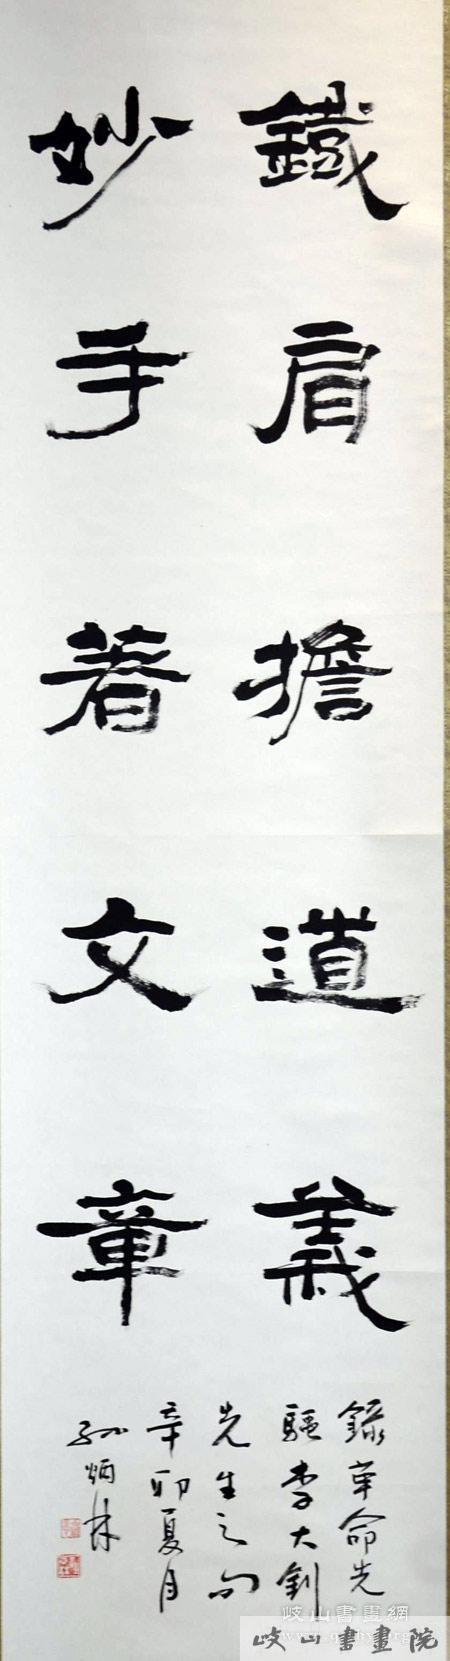 鐵肩擔道義
妙手著文章
錄革命先
驅李大釗
先生之句
辛卯夏月
孙炳林
岐山書畫網
岐山書畫院